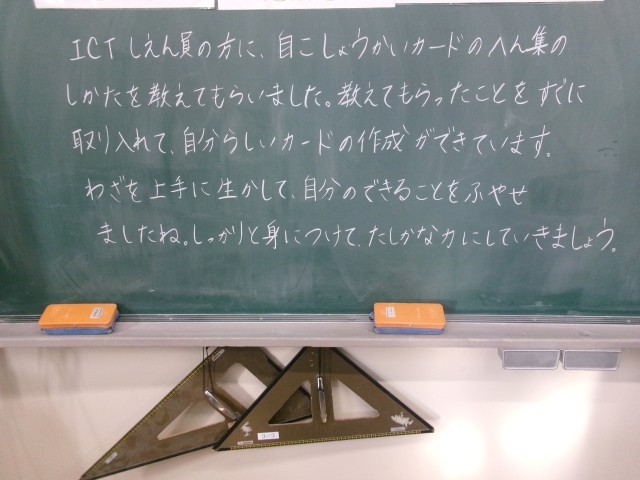 ICTしえん員の方に、自こしょうかいカードのへん集の
しかたを教えてもらいました。教えてもらったことをすぐに
取り入れて、自分らしいカードの作成ができています。
わざを上手に生かして、自分のできることをふやせ
ましたね。しっかりと身につけて、たしかな力にしていきましょう。